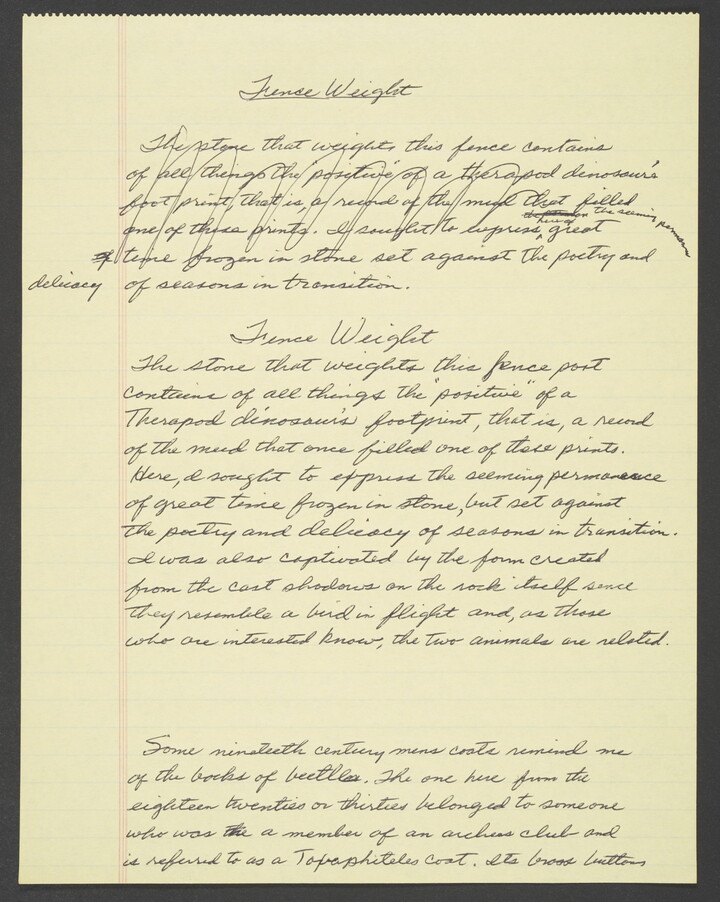 Fence Weight
The stone that weights this fence contains
of all things the "positive" of a therapod dinosaur's
foot print, that is, a record of the mud that filled
here of the seeming permanence
one of these prints. I sought to express great
of time frozen in stone set against the poetry and
delicacy of seasons in transition.
Fence Weight
The stone that weights this fence post
contains of all things the "positive" of a
Therapod dinosaur's footprint, that is, a record
of the mud that once filled one of these prints.
Here, I sought to express the seeming permanence
of great time frozen in stone, but set against
the poetry and delicacy of seasons in transition.
I was also captivated by the form created
from the cast shadows on the rock itself sence
they resemble a bird in flight and, as those
who are interested know, the two animals are related.
Some nineteeth century mens coats remind me
of the backs of beetles. The one here from the
eighteen twenties or thirties belonged to someone
who was a member of an archers club and
is referred to as a Toxaphiteles coat. Its brass buttons